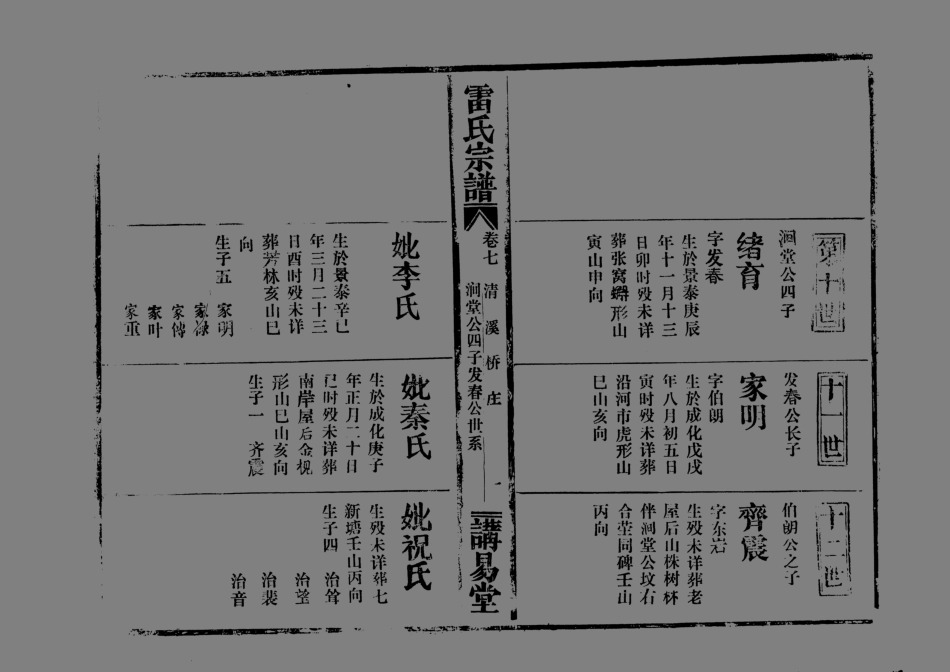 第十世
涧堂公四子
绪育
字发春
生於景泰庚辰
年十一月十三
日卯时殁未详
葬张窝蠏形山
寅山申向
十一世
发春公长子
家明
字伯朗
生於成化戊戌
年八月初五日
寅时殁未详葬
沿河市虎形山
巳山亥向
十二世
伯朗公之子
齊震
字东岩
生殁未详葬老
屋后山株树林
伴涧堂公坟右
合茔同碑壬山
丙向
雷氏宗譜
卷七
清溪桥庄
涧堂公四子发春公世系
一
講易堂
妣李氏
生於景泰辛巳
年三月二十三
日酉时殁未详
葬芳林亥山巳
向
生子五 家明
家禄
家傅
家叶
家重
妣秦氏
生於成化庚子
年正月二十日
巳时殁未详葬
南岸屋后金枧
形山巳山亥向
生子一 齐震
妣祝氏
生殁未详葬七
新塘壬山丙向
生子四 治聳
治望
治裴
治音